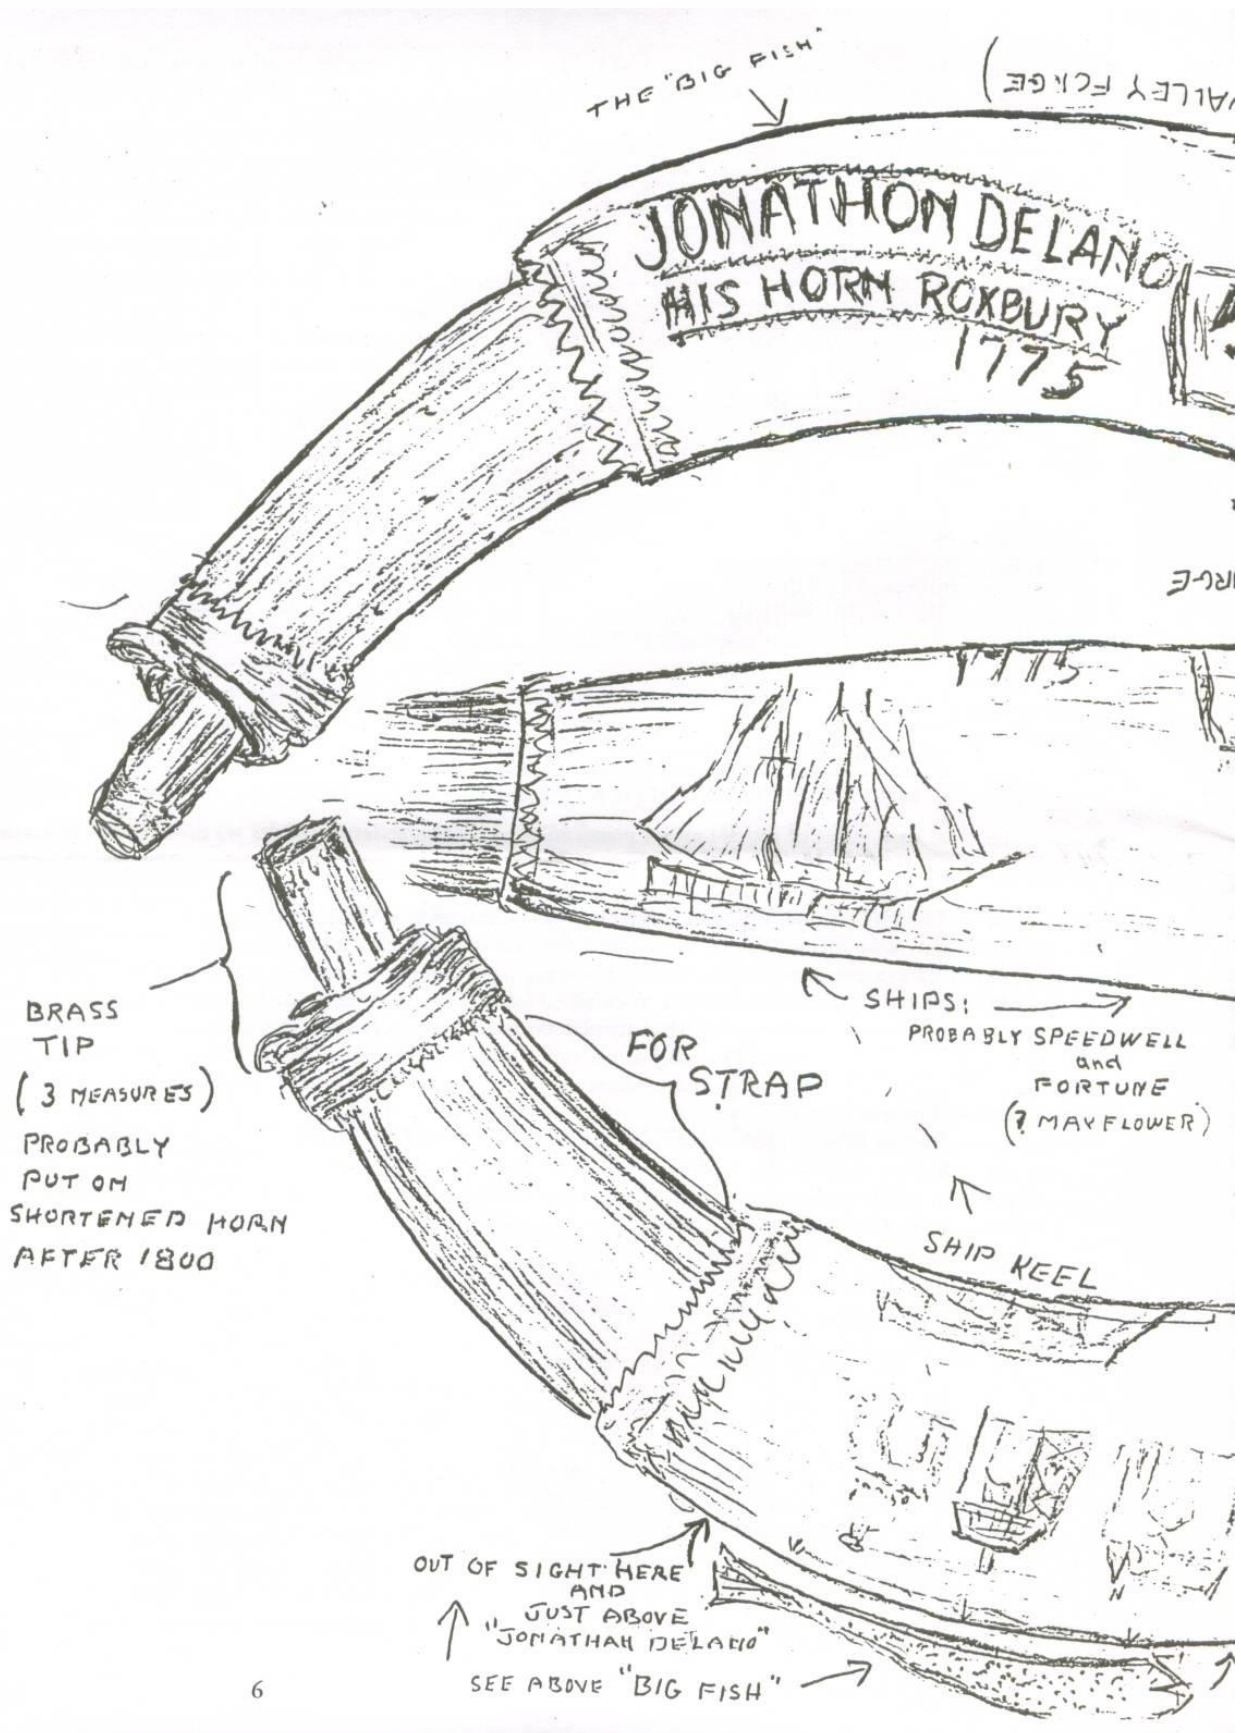 THE "BIG FISH"
VALLEY FORGE)
JONATHON DELANO
HIS HORN ROXBURY
1775
1775
BRASS
TIP
(3 MEASURES)
PROBABLY
PUT ON
SHORTENED HORN
AFTER 1800
FOR
STRAP
SHIPS:
PROBABLY SPEEDWELL
and
FORTUNE
(? MAYFLOWER)
SHIP KEEL
OUT OF SIGHT HERE
AND
JUST ABOVE
"JONATHAN DELANO"
SEE ABOVE "BIG FISH"
6